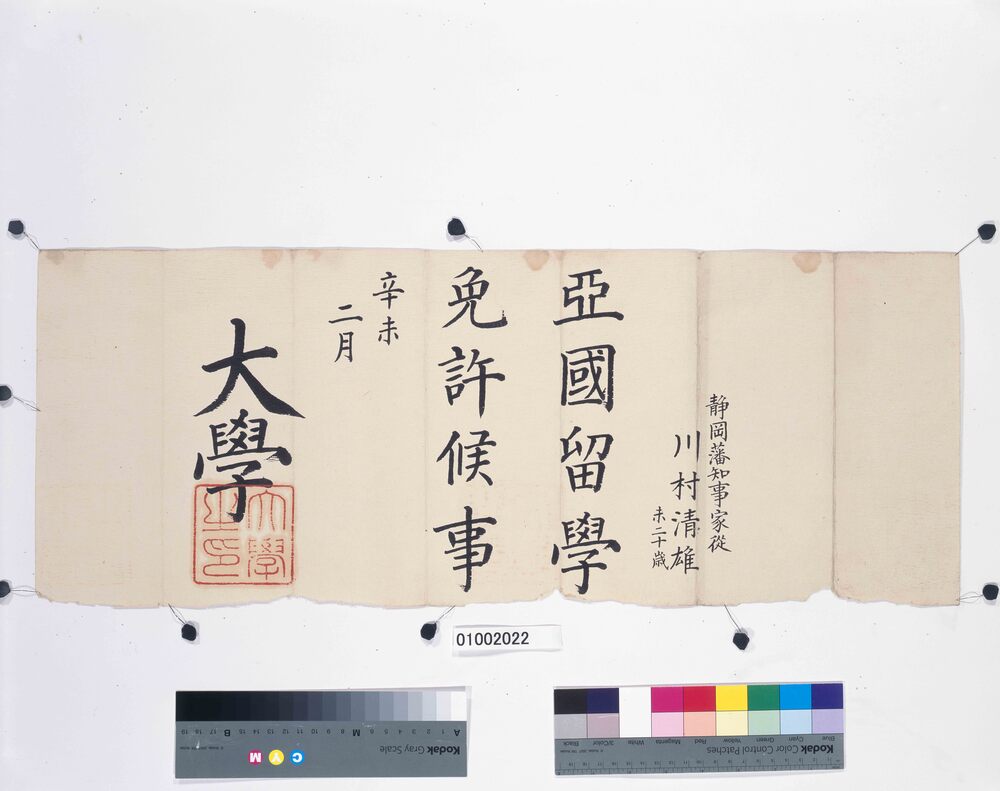 静岡藩知事家從
川村清雄
未二十歳
亞國留學
免許候事
辛未
二月
大學
大學
之印
01002022
Kodak Gray Scale
C Y M
A 1 2 3 4 5 6 M 8 9 10 11 12 13 14 15 B 17 18 19
Kodak Color Control Patches
Blue Cyan Green Yellow Red Magenta White 3/Color Black